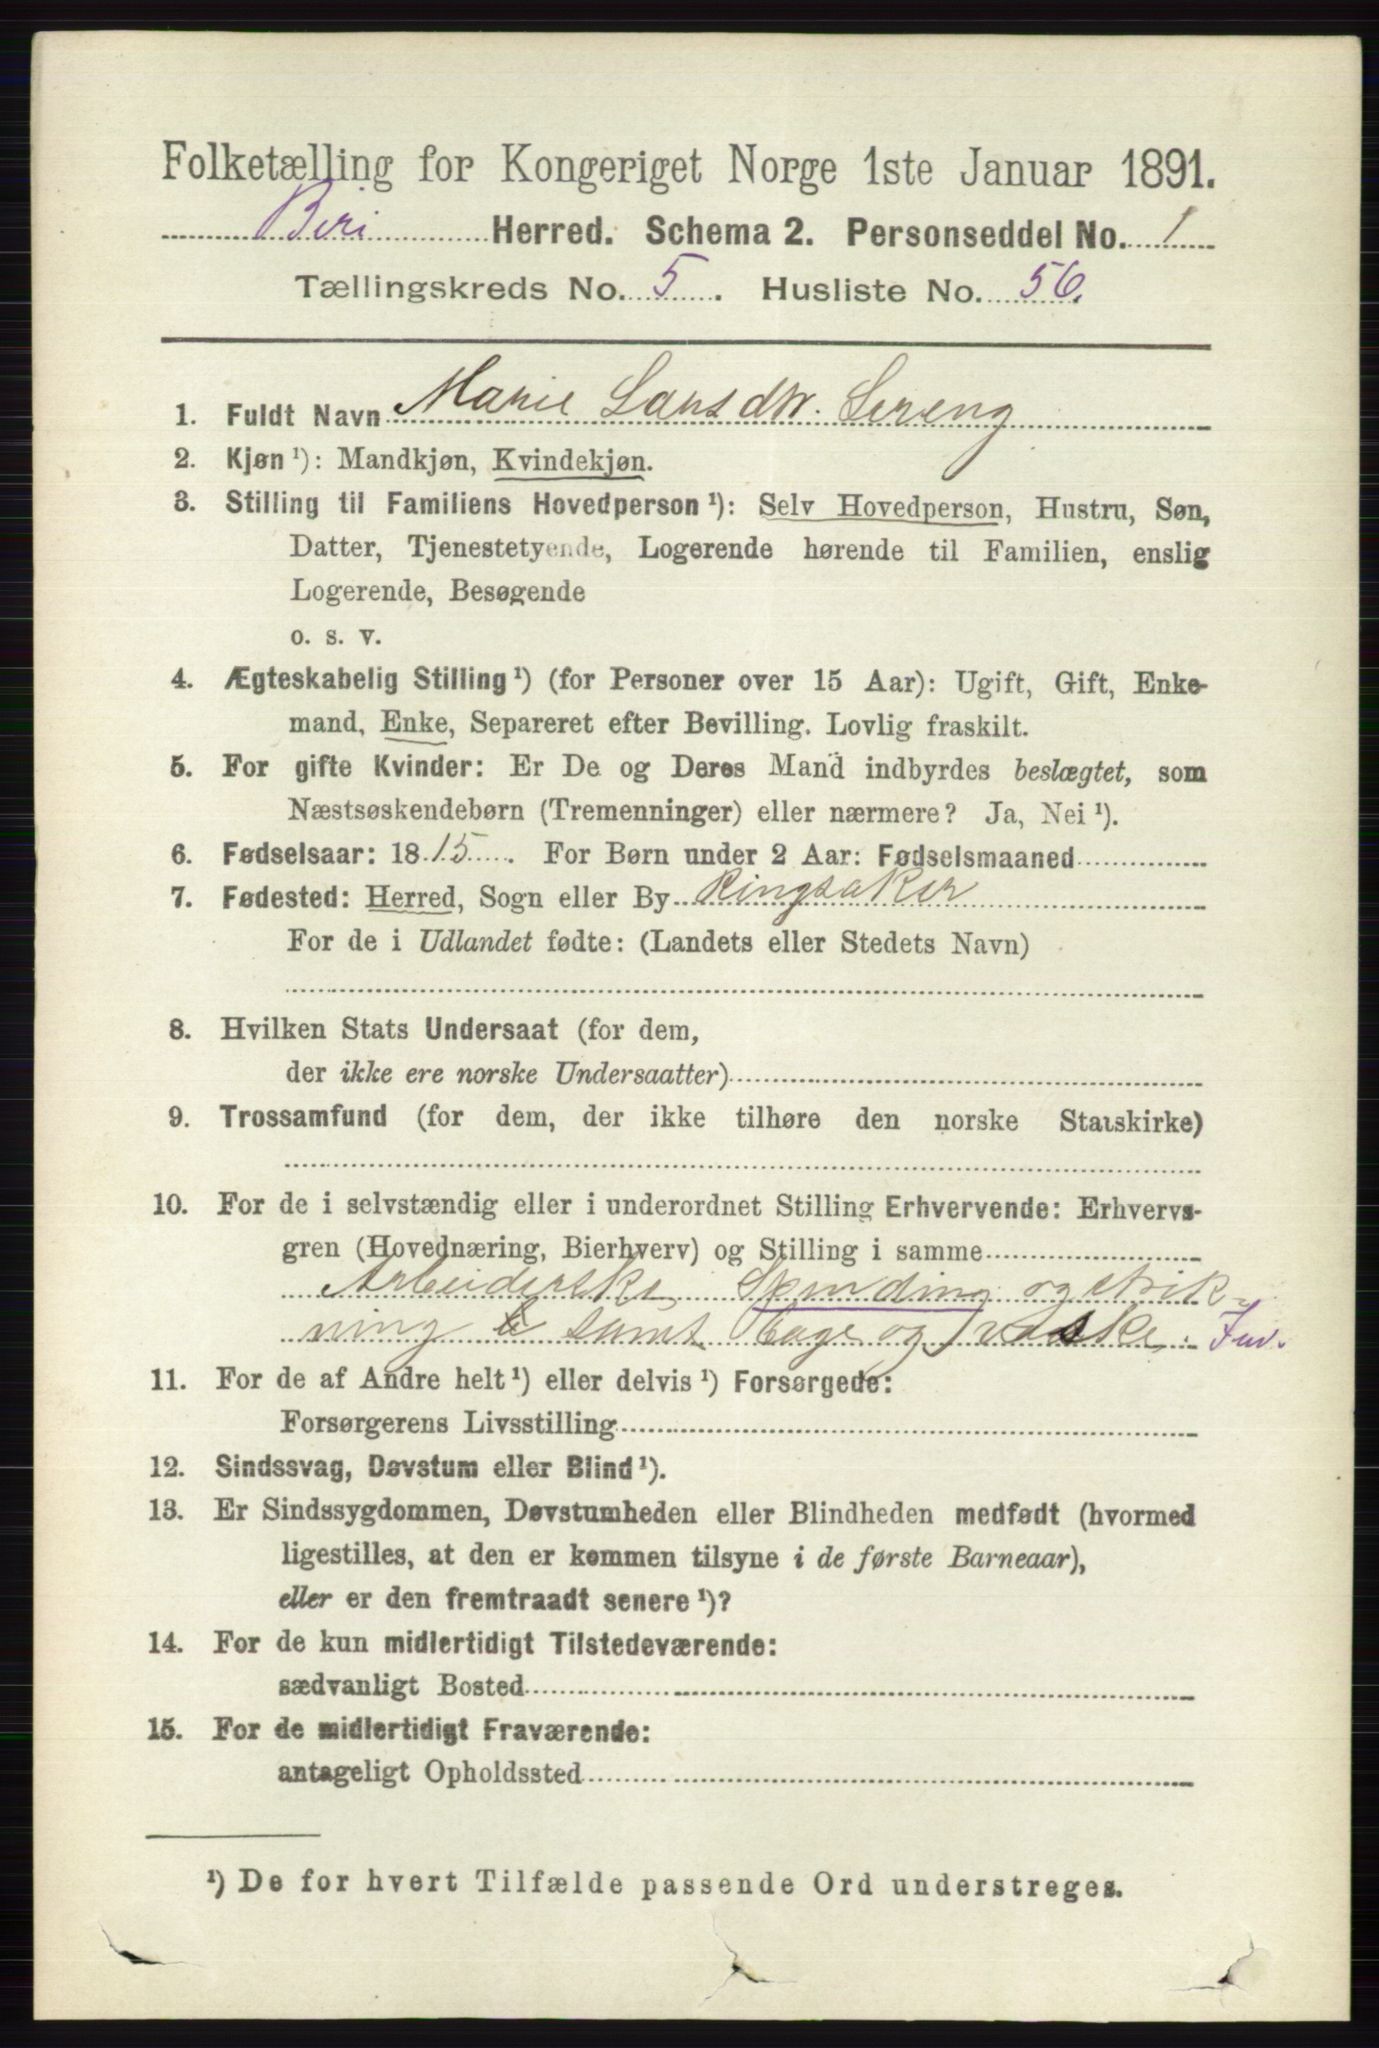 Folketælling for Kongeriget Norge 1ste Januar 1891.
Biri Herred. Schema 2. Personseddel No. 1
Tællingskreds No. 5. Husliste No. 56.
1. Fuldt Navn Marie Larsdtr. Sereng
2. Kjøn ¹): Mandkjøn, Kvindekjøn.
3. Stilling til Familiens Hovedperson ¹): Selv Hovedperson, Hustru, Søn,
Datter, Tjenestetyende, Logerende hørende til Familien, enslig
Logerende, Besøgende
o. s. v.
4. Ægteskabelig Stilling ¹) (for Personer over 15 Aar): Ugift, Gift, Enke-
mand, Enke, Separeret efter Bevilling. Lovlig fraskilt.
5. For gifte Kvinder: Er De og Deres Mand indbyrdes beslægtet, som
Næstsøskendebørn (Tremenninger) eller nærmere? Ja, Nei ¹).
6. Fødselsaar: 1815. For Børn under 2 Aar: Fødselsmaaned
7. Fødested: Herred, Sogn eller By Ringsaker
For de i Udlandet fødte: (Landets eller Stedets Navn)
8. Hvilken Stats Undersaat (for dem,
der ikke ere norske Undersaatter)
9. Trossamfund (for dem, der ikke tilhøre den norske Statskirke)
10. For de i selvstændig eller i underordnet Stilling Erhvervende: Erhvervs-
gren (Hovednæring, Bierhverv) og Stilling i samme
Arbeiderske Spinding og strik-
ning samt bage og vaske. Ind.
11. For de af Andre helt ¹) eller delvis ¹) Forsørgede:
Forsørgerens Livsstilling
12. Sindssvag, Døvstum eller Blind ¹).
13. Er Sindssygdommen, Døvstumheden eller Blindheden medfødt (hvormed
ligestilles, at den er kommen tilsyne i de første Barneaar),
eller er den fremtraadt senere ¹)?
14. For de kun midlertidigt Tilstedeværende:
sædvanligt Bosted
15. For de midlertidigt Fraværende:
antageligt Opholdssted
¹) De for hvert Tilfælde passende Ord understreges.